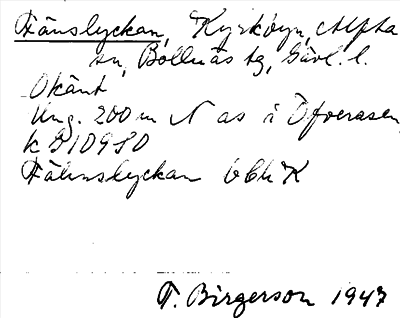 Fänslyckan, Kyrkbyn, Alfta
sn, Bollnäs tg, Gävl. l.
Okänt
Ung. 200 m N as i Öfverasen,
k
Fälunslyckan UbhK
T. Birgerson 1947